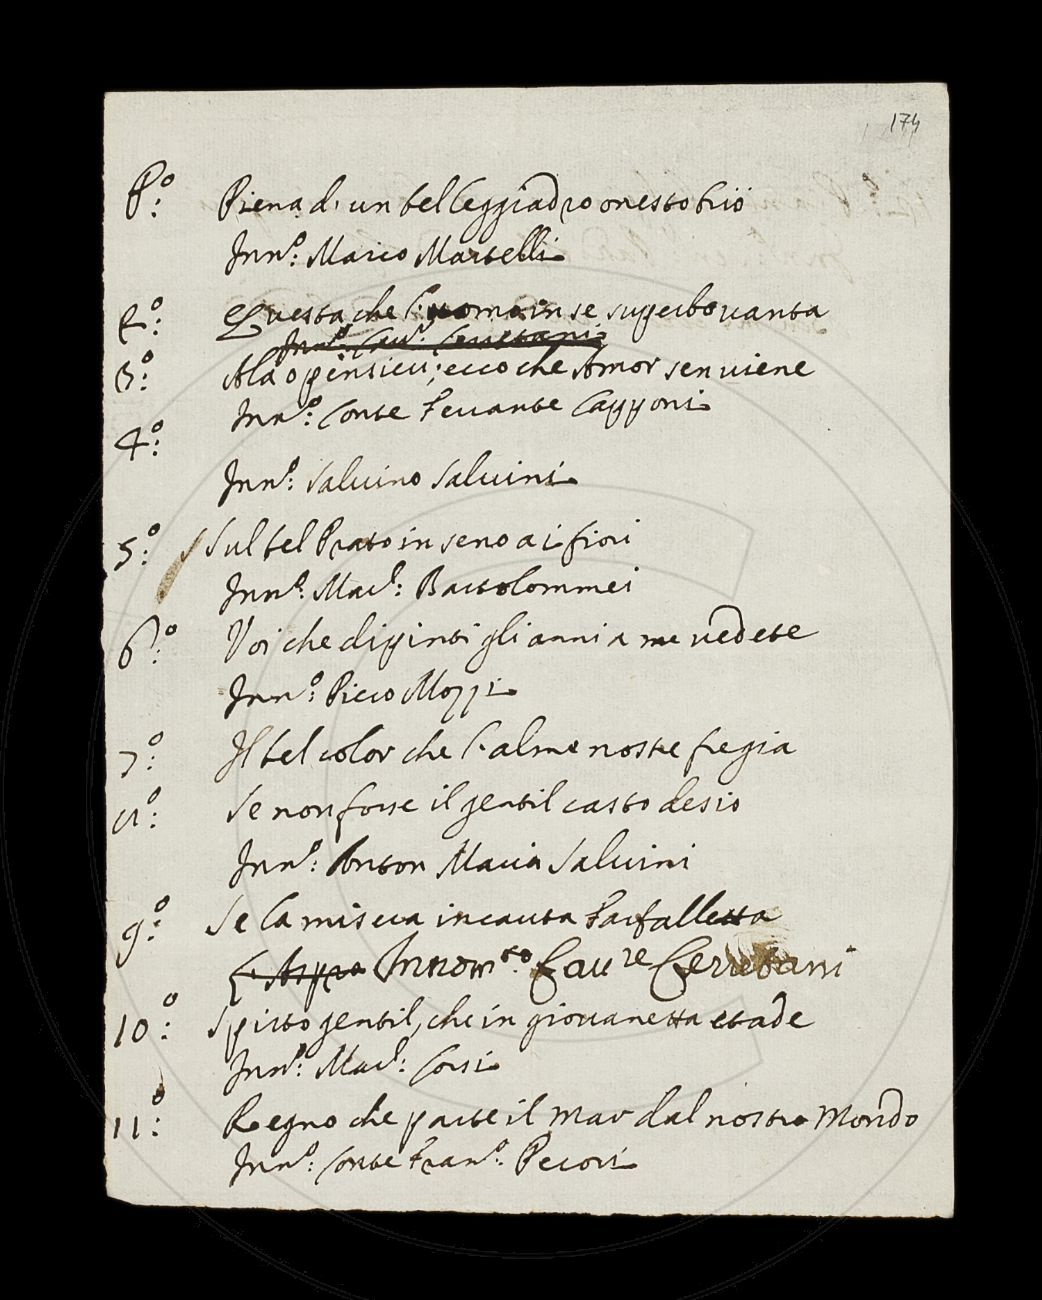 174
P.º Piena di un bel leggiadro onesto brio
Inn.º: Marco Martelli
2.º: Questa che l' uomo in se superbo vanta
Inn.º: Cav.r: Cerretani
3.º: Ala o pensieri; ecco che Amor sen viene
Inn.º: Conte Ferrante Capponi
4.º:
Inn.º: Salvino Salvini
5.º: Sul bel Prato in seno a i fiori
Inn.º: Mar.l: Bartolommei
6.º: Voi che dipinti gli anni a me vedete
Inn.º: Piero Mozzi
7.º: Il bel color che l' alme nostre fregia
8.º: Se non forse il gentil casto desio
Inn.º: Anton Maria Salvini
9.º: Se la misera incauta Farfalletta
Innom.to Cav.re Cerretani
10.º: Spirto gentil, che in giovanetta etade
Inn.º: Mar.l: Corsi
11.º: Regno che parte il Mar dal nostro Mondo
Inn.º: Conte Fran.º: Pecori